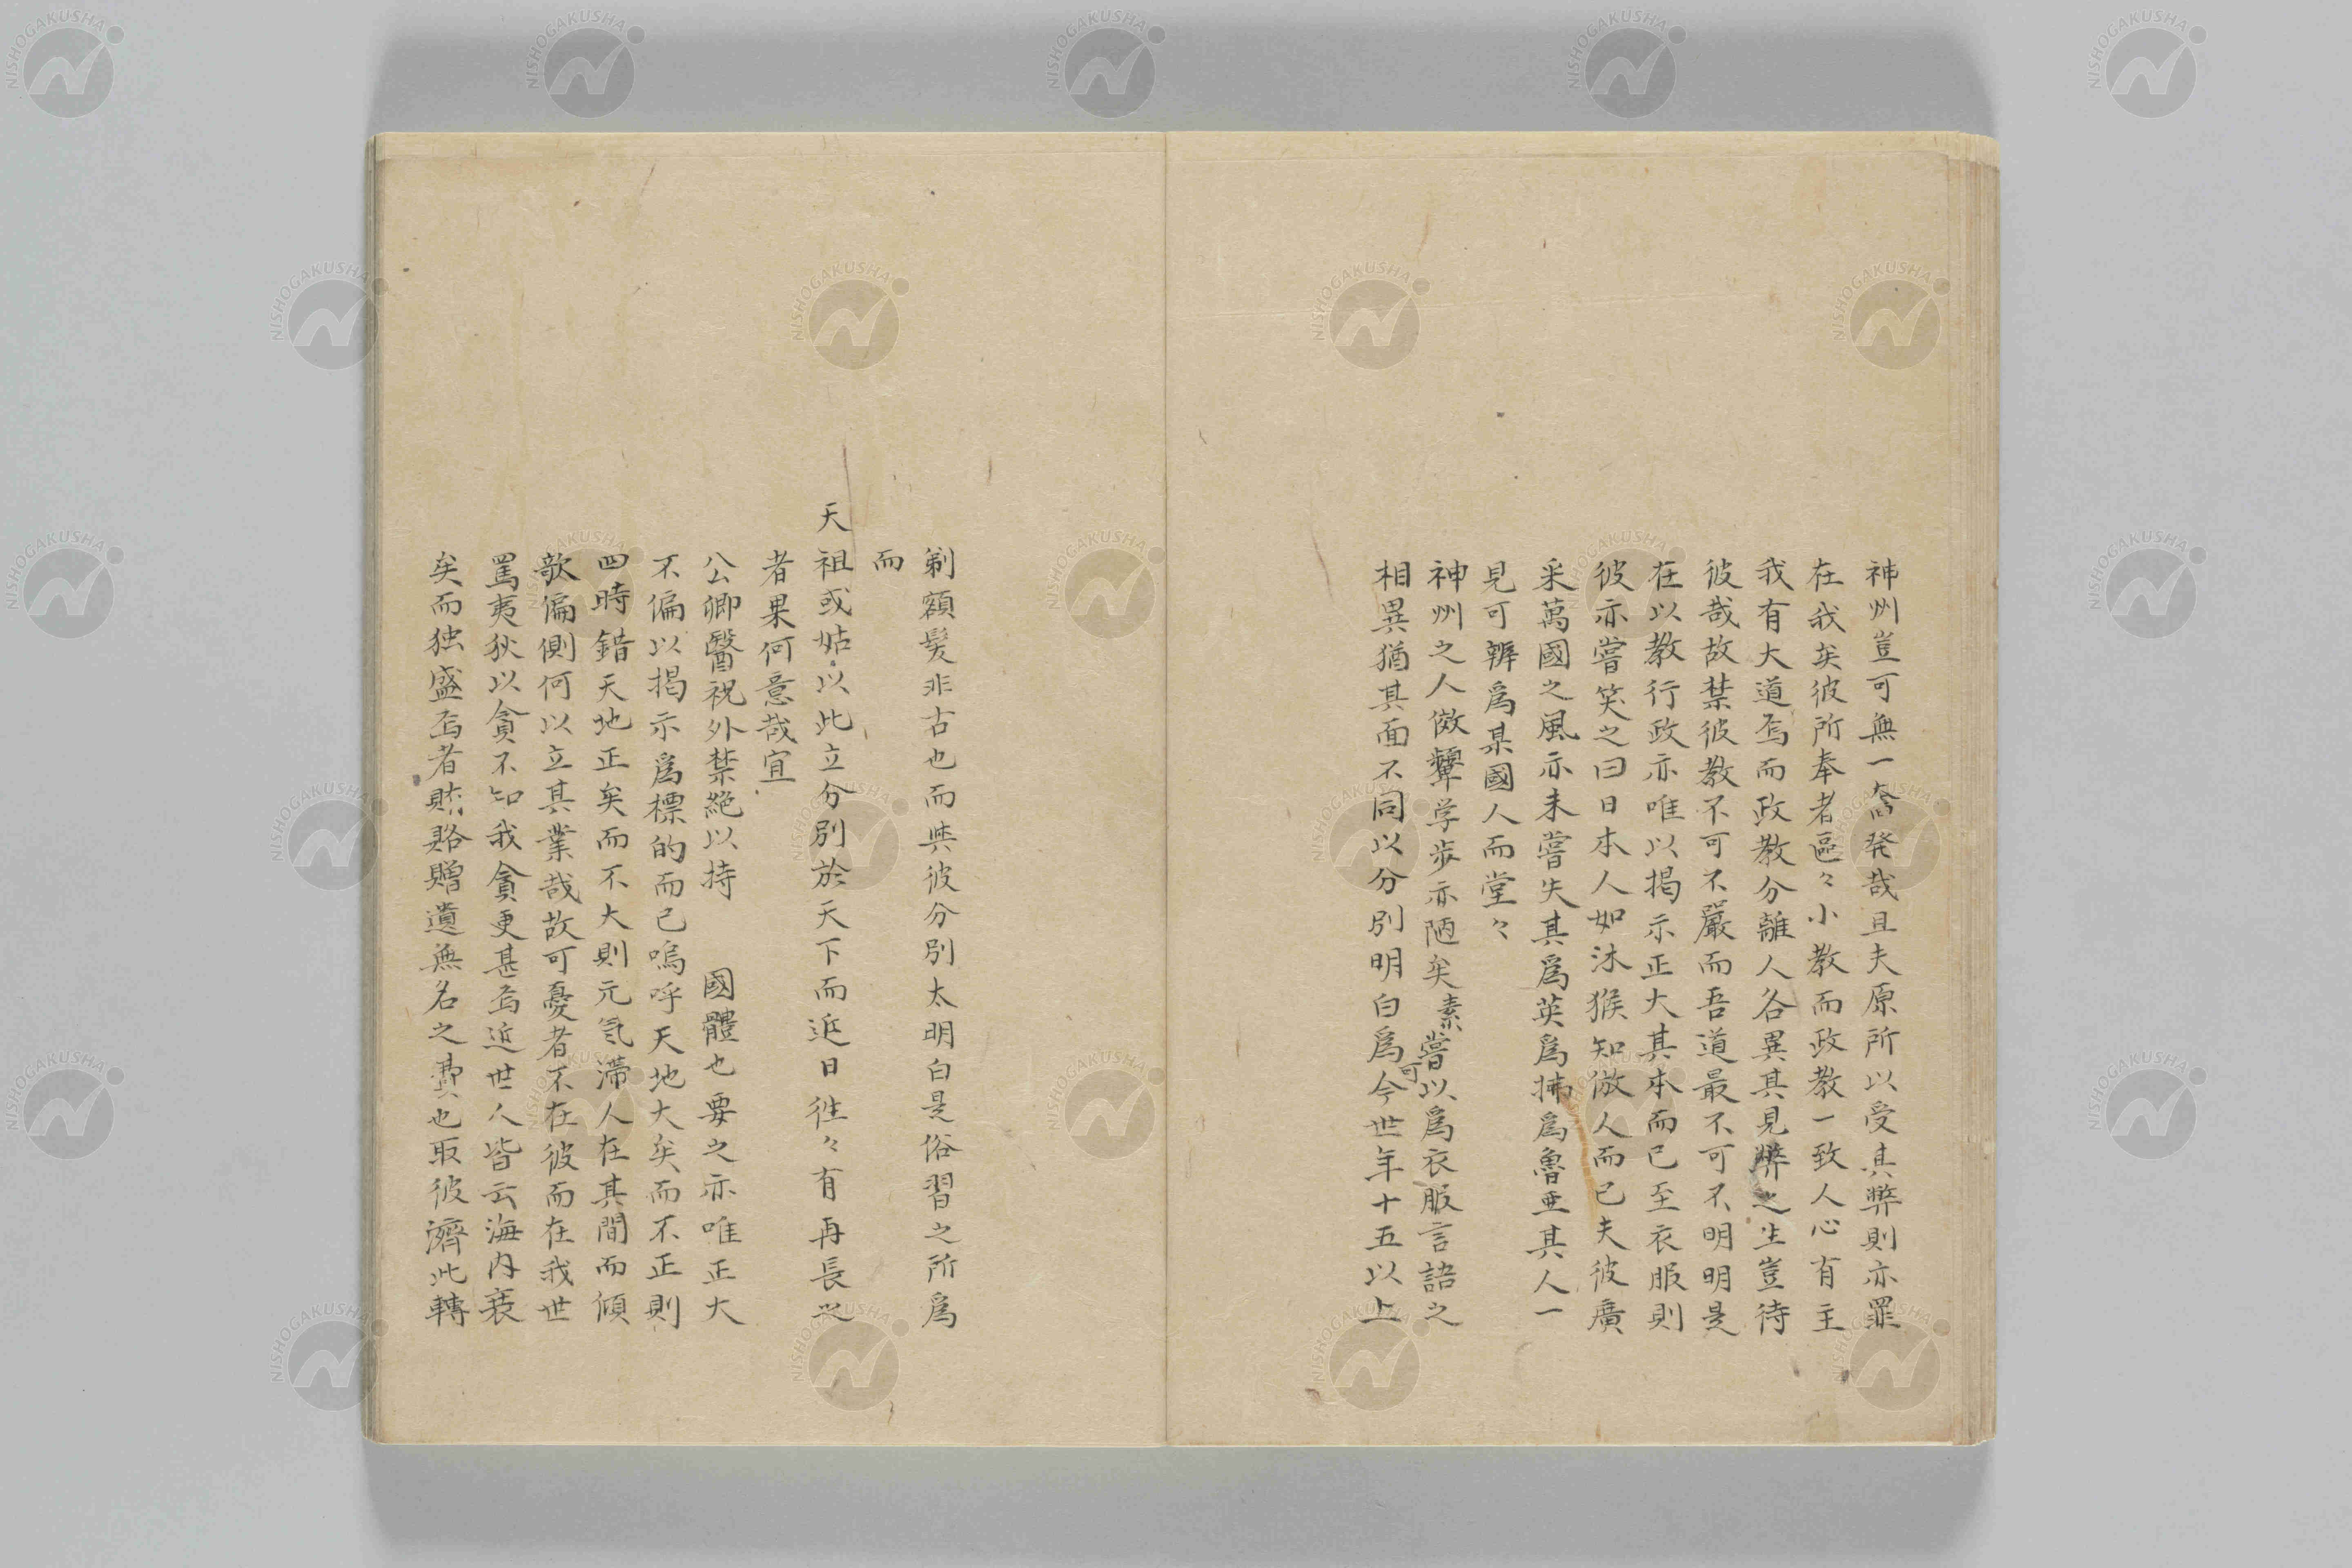 神州豈可無一奮発哉且夫原所以受其弊則亦罪
在我矣彼所奉者區々小教而政教一致人心有主
我有大道焉而政教分離人各異其見弊之生豈待
彼哉故禁彼教不可不嚴而吾道最不可不明明是
在以教行政亦唯以揭示正大其本而已至衣服則
彼亦嘗笑之曰日本人如沐猴知倣人而已夫彼廣
采萬國之風亦未嘗失其爲英爲拂爲魯亜其人一
見可辨爲某國人而堂々
神州之人倣顰学歩亦陋矣素嘗可以爲衣服言語之
相異猶其面不同以分別明白爲今世年十五以上
剃額髮非古也而與彼分別太明白是俗習之所爲
而
天祖或姑以此立分別於天下而近日往々有再長之
者果何意哉宜
公卿醫祝外禁絶以持　國體也要之亦唯正大
不偏以揭示爲標的而已嗚呼天地大矣而不正則
四時錯天地正矣而不大則元氣滞人在其間而傾
欹偏側何以立其業哉故可憂者不在彼而在我世
罵夷狄以貪不知我貪更甚焉近世人皆云海内衰
矣而独盛焉者賄賂贈遺無名之費也取彼濟此轉